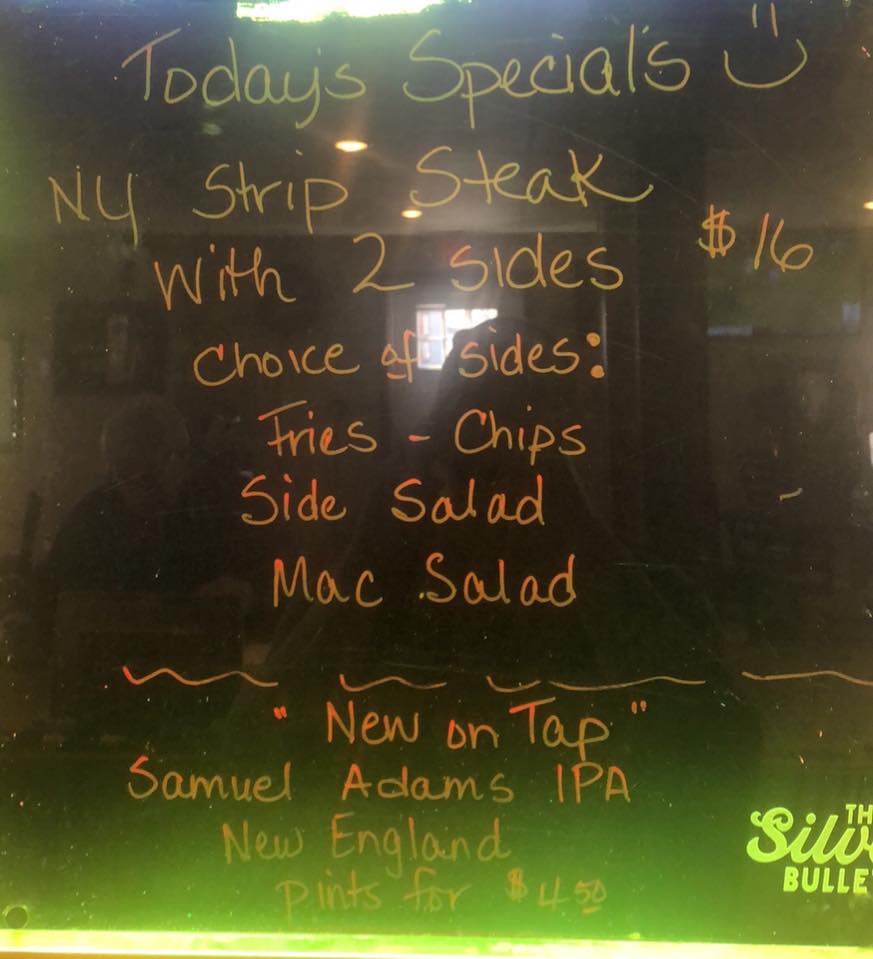 Today's Special's
NY Strip Steak
With 2 sides $16
Choice of sides:
Fries - Chips
Side Salad
Mac Salad
"New on Tap"
Samuel Adams IPA
New England
pints for $4 50
TH
Silv
BULLE